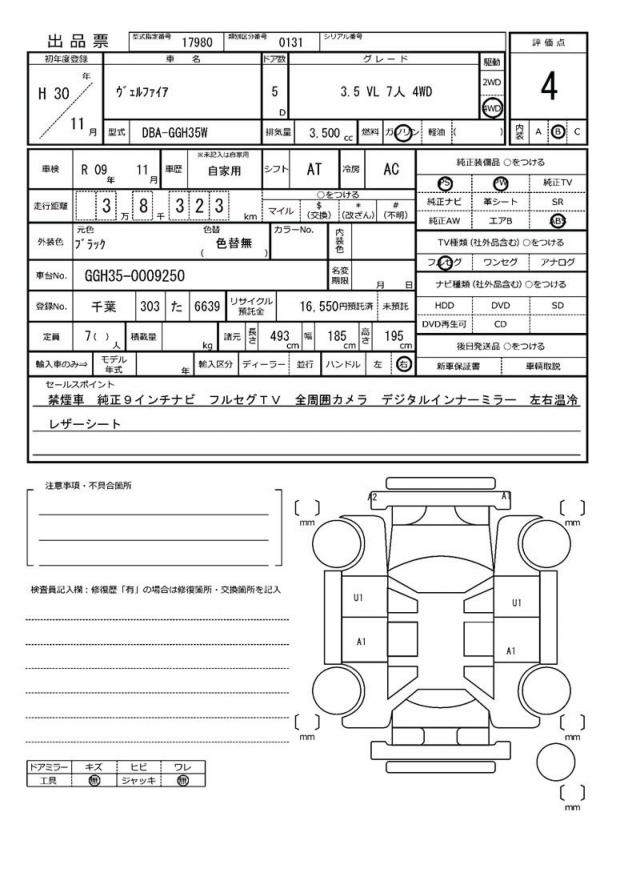 出品票 型式指定番号 17980 類別区分番号 0131 シリアル番号
評価点
4
初年度登録 車名 ドア数 グレード 駆動
H 30 年 11 月
ヴェルファイア 5 D 3.5 VL 7人 4WD
2WD
4WD
型式 DBA-GGH35W 排気量 3,500 cc 燃料 ガソリン 軽油 ( )
内装 A B C
車検 R 09 年 11 月 車歴 ※未記入は自家用 自家用 シフト AT 冷房 AC
走行距離 3 万 8 千 3 2 3 km
○をつける
マイル $ (交換) * (改ざん) # (不明)
外装色 元色 ブラック 色替 ( 色替無 ) カラーNo. 内装色
車台No. GGH35-0009250 名変期限 月 日
登録No. 千葉 303 た 6639 リサイクル預託金 16,550円預託済 未預託
定員 7( ) 人 積載量 kg 諸元 長さ 493 cm 幅 185 cm 高さ 195 cm
輸入車のみ⇒ モデル年式 年 輸入区分 ディーラー 並行 ハンドル 左 右
純正装備品 ○をつける
PS PW 純正TV
純正ナビ 革シート SR
純正AW エアB ABS
TV種類 (社外品含む) ○をつける
フルセグ ワンセグ アナログ
ナビ種類 (社外品含む) ○をつける
HDD DVD SD
DVD再生可 CD
後日発送品 ○をつける
新車保証書 車輌取説
セールスポイント
禁煙車 純正9インチナビ フルセグTV 全周囲カメラ デジタルインナーミラー 左右温冷
レザーシート
注意事項・不具合箇所
検査員記入欄：修復歴「有」の場合は修復箇所・交換箇所を記入
ドアミラー キズ ヒビ ワレ
工具 無 ジャッキ 無
A2 A1
mm mm
U1 U1
A1 A1
mm mm
mm